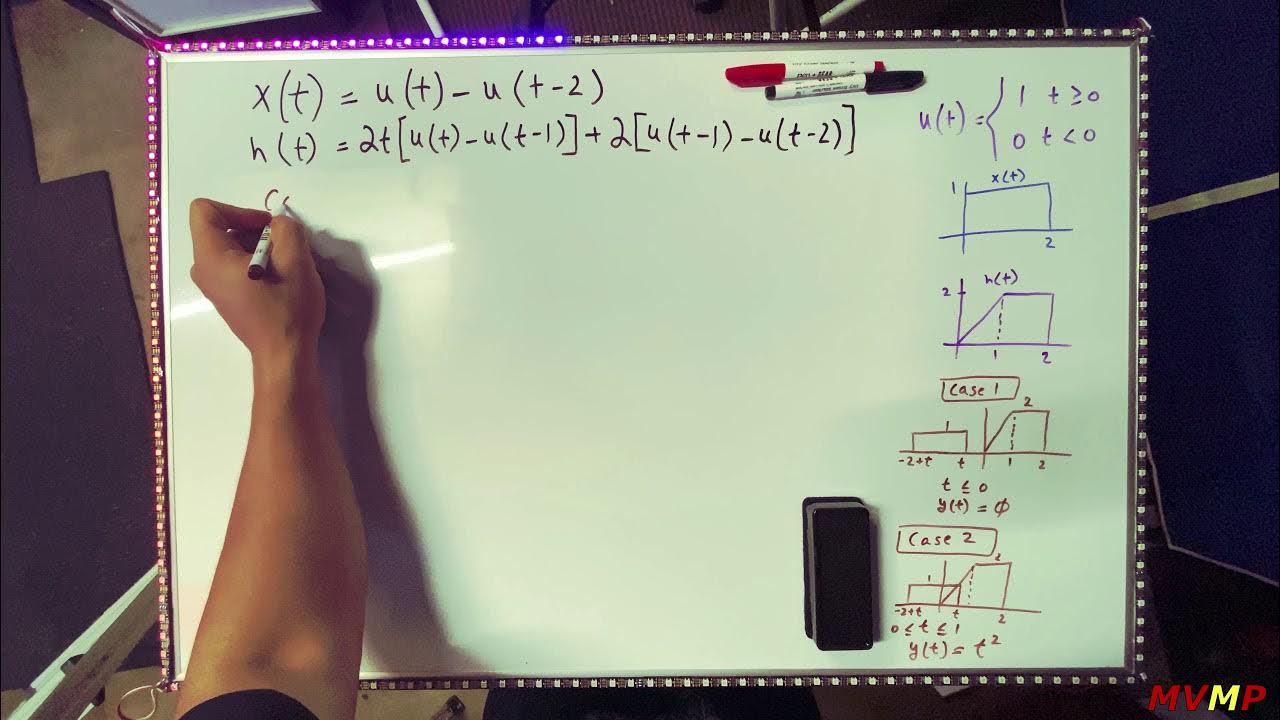 x(t) = u(t) - u(t-2)
h(t) = 2t[u(t) - u(t-1)] + 2[u(t-1) - u(t-2)]
u(t) = { 1 t ≥ 0
0 t < 0
x(t)
1
2
h(t)
2
1 2
Case 1
1 2
-2+t t 1 2
t ≤ 0
y(t) = ϕ
Case 2
1 2
-2+t t 2
0 ≤ t ≤ 1
y(t) = t²
MVMP